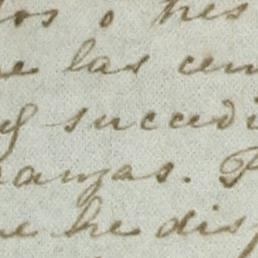 dos o tres
e las cen
y succedi
anzas. P
ue he disp